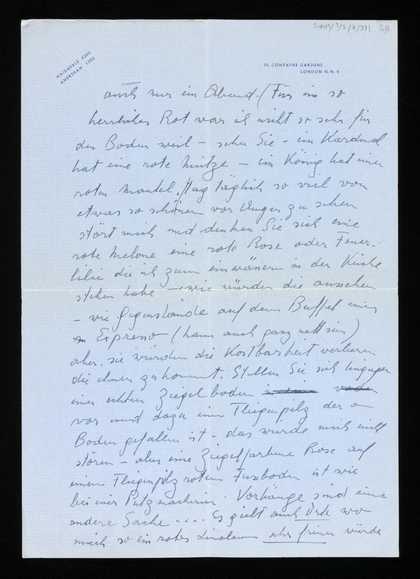 MAIDA VALE 2301
19, COMPAYNE GARDENS
LONDON N.W.6
auch nur ein Abend. (Für ein so
herrliches Rot war ich nicht so sehr für
den Boden weil – sehen Sie – ein Kardinal
hat eine rote Mütze – ein König hat einen
roten Mantel. Tag täglich so viel von
etwas so schönem vor Augen zu sehen
stört mich und denken Sie sich eine
rote Melone eine rote Rose oder Feuer-
lilie die ich zum in der Küche
stehen habe – wie würden die aussehen
– wie Gegenstände auf dem Buffet einer
Espresso (kann auch ganz nett sein)
aber sie würden die Kostbarkeit verlieren
die ihnen zukommt. Stellen Sie sich hingegen
einen echten Ziegelboden
vor und dazu ein Fliegenpilz der am
Boden gefallen ist – das würde mich nicht
stören – aber eine Ziegelfarbene Rose auf
einem Fliegenpilzroten Fussboden ist wie
bei einer Putzmacherin. Vorhänge sind eine
andere Sache .... Es giebt auch Orte wo
mich so ein rotes Linoleum sehr freuen würde